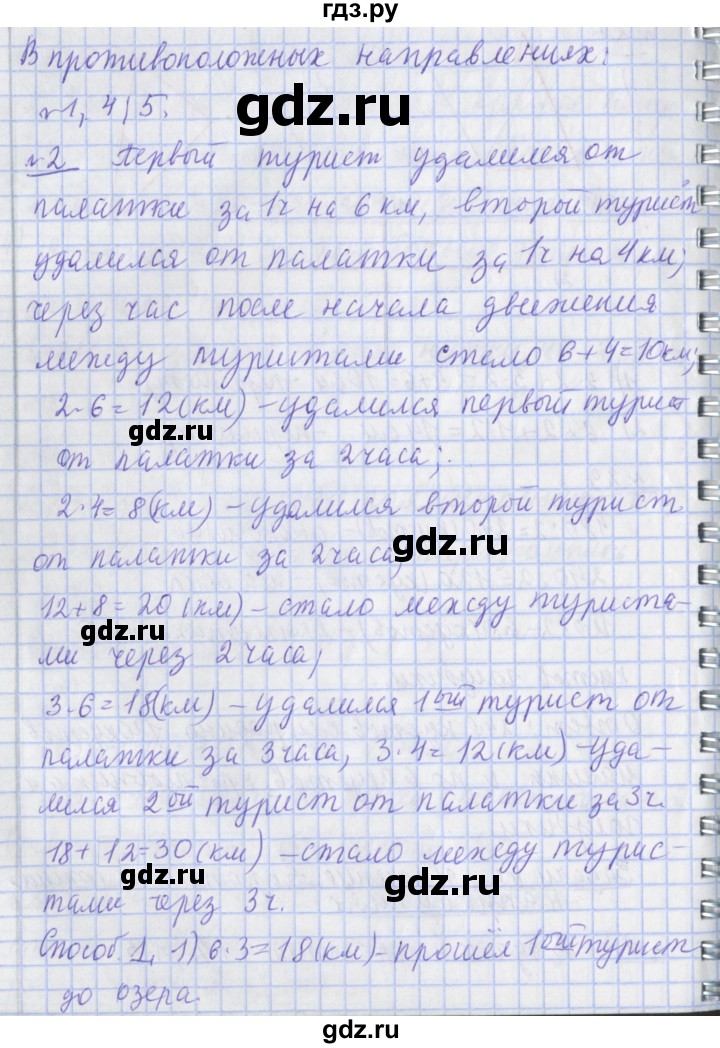 гдз.ру
В противоположных направлениях:
№1, 4, 5.
gdz.ru
№2 Первый турист удалился от
палатки за 1ч на 6 км, второй турист
удалился от палатки за 1ч на 4км;
через час после начала движения
между туристами стало 6+4=10км;
2·6=12(км) – удалился первый турист
gdz.ru
от палатки за 2 часа;
2·4=8(км) – удалился второй турист
gdz.ru
от палатки за 2 часа;
12+8=20(км) – стало между туриста-
gdz.ru
ми через 2 часа;
3·6=18(км) – удалился 1ый турист от
палатки за 3 часа, 3·4=12(км) – уда-
лился 2ой турист от палатки за 3ч.
18+12=30(км) – стало между турис-
gdz.ru
gdz.ru
тами через 3ч.
Способ 1, 1) 6·3=18(км) – прошёл 1ый турист
до озера.
gdz.ru
gdz.ru